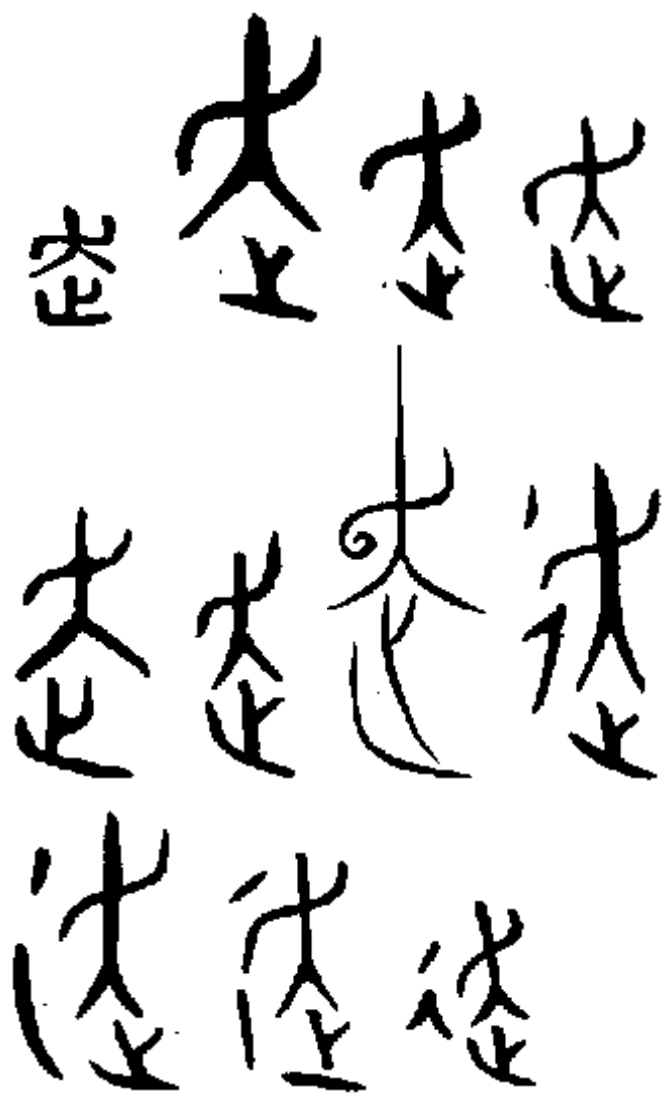 走走走走
走走走走
走走走